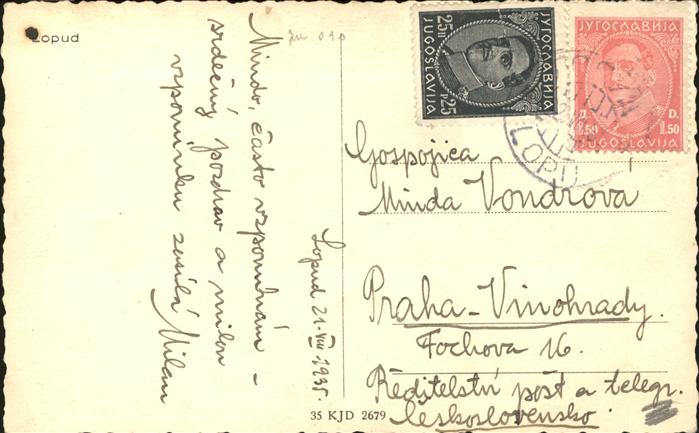 Lopud
Mindo, často vzpomínám -
srdečný pozdrav a milou
vzpomínku zasílá Milan
Lopud 21. VIII 1935.
ЈУГОСЛАВИЈА
25 П 25 P
JUGOSLAVIJA
ЈУГОСЛАВИЈА
Д. D.
1.50 1.50
JUGOSLAVIJA
LOPUD
Gospojica
Minda Vondrová
Praha-Vinohrady.
Fochova 16.
Ředitelství pošt a telegr.
Československo.
35 KJD 2679